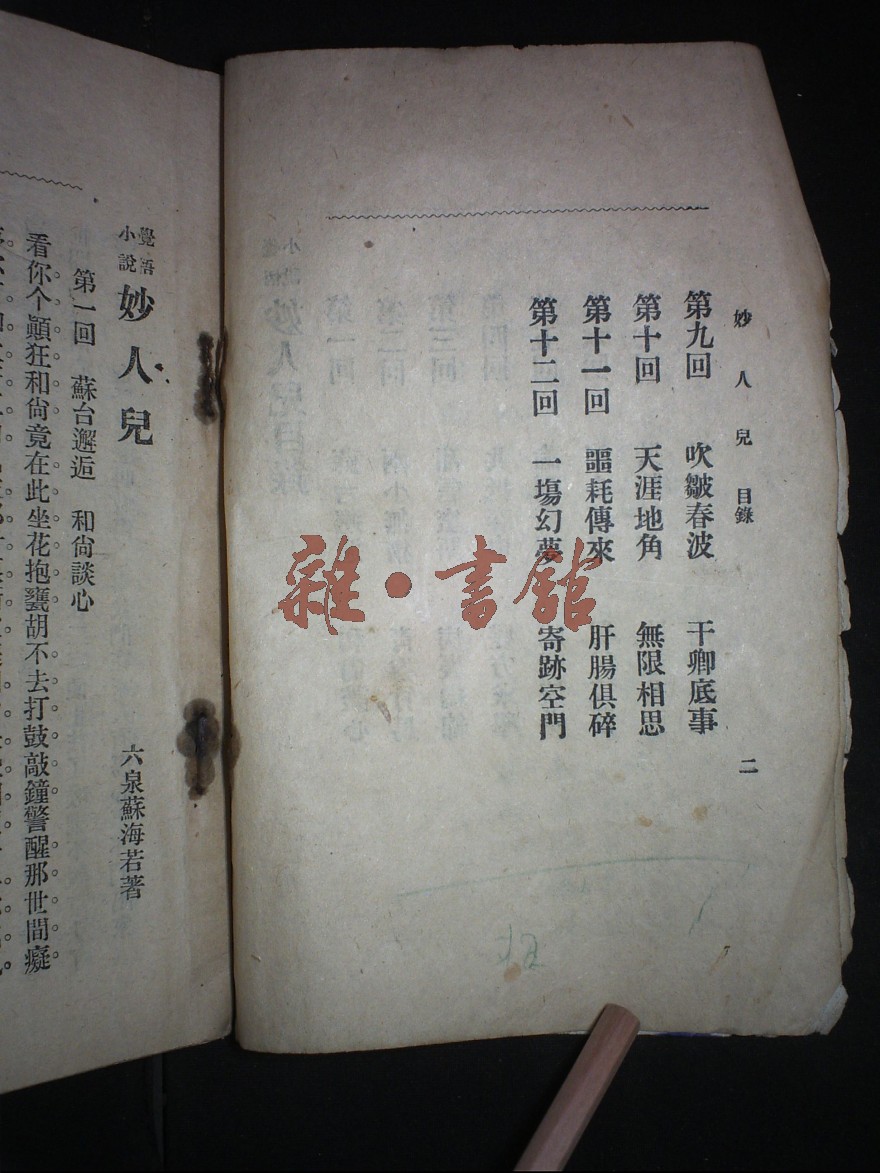 妙人兒 目錄
二
第九回 吹皺春波 干卿底事
第十回 天涯地角 無限相思
第十一回 噩耗傳來 肝腸俱碎
第十二回 一塲幻夢 寄跡空門
雜·書館
覺語小說 妙人兒
六泉蘇海若著
第一回 蘇台邂逅 和尙談心
看你个顚狂和尙竟在此坐花抱甕胡不去打鼓敲鐘警醒那世間癡